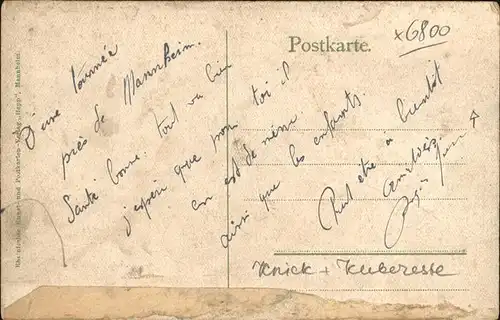 x6800
Postkarte.
D'une tournée
près de Mannheim.
Santé bonne. tout va bien
j'espère que pour toi il
en est de même
ainsi que les enfants.
Peut être à bientôt
amitiés
Knick + Kleberesse
Rheinische Kunst- und Postkarten-Verlag „Hepp", Mannheim.